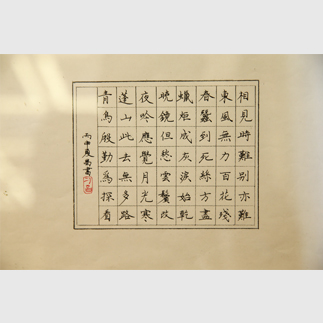 相見時難別亦難
東風無力百花殘
春蠶到死絲方盡
蠟炬成灰淚始乾
曉鏡但愁雲鬢改
夜吟應覺月光寒
蓬山此去無多路
青鳥殷勤為探看
丙申夏書